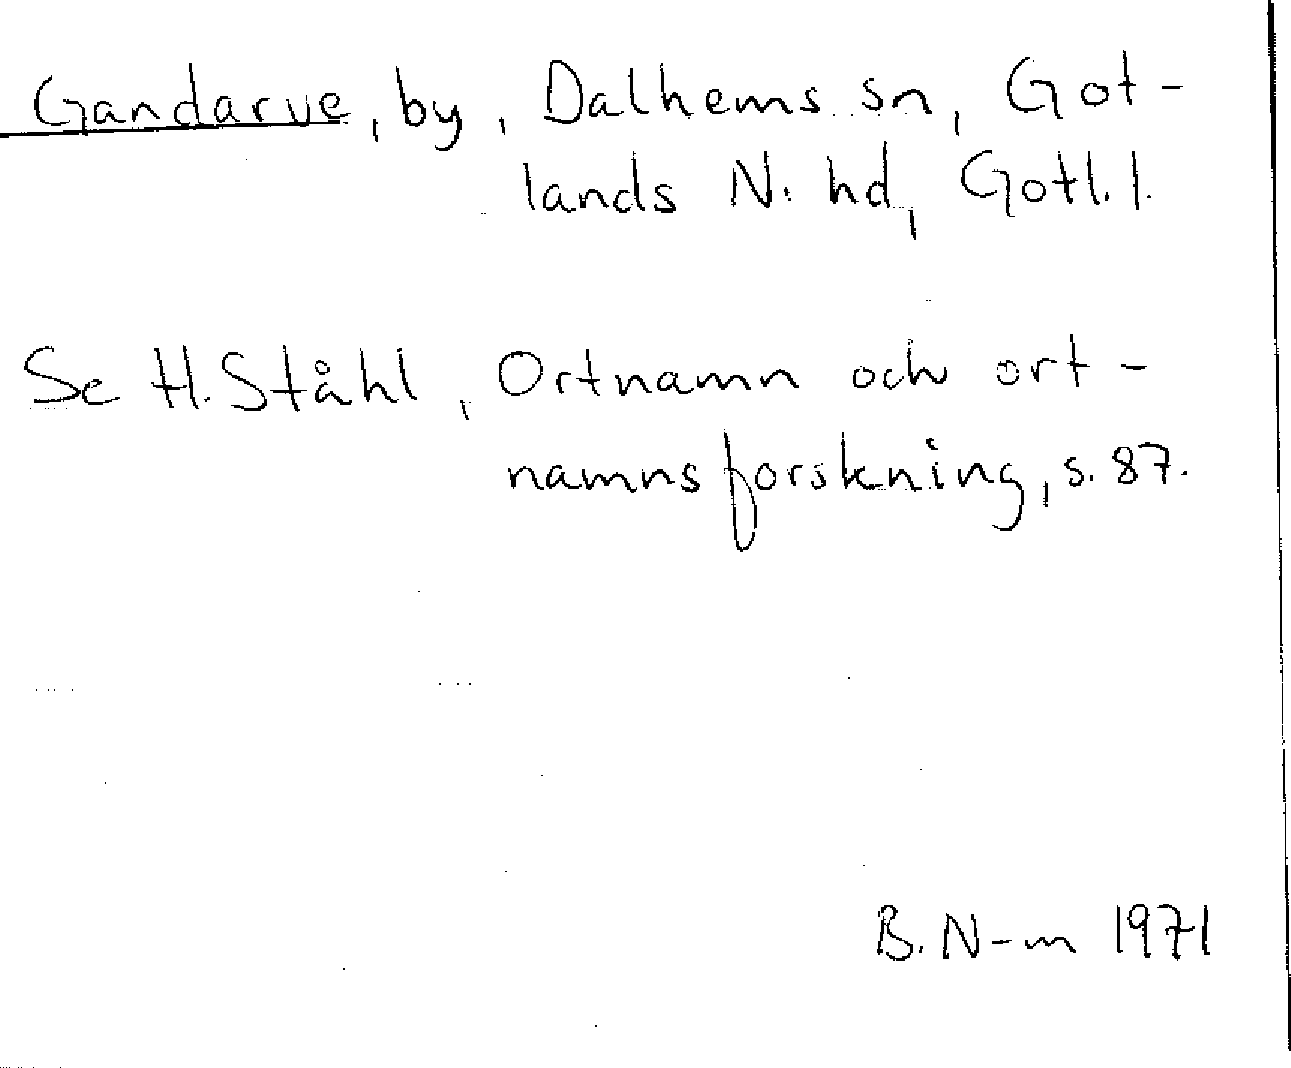 Gandarve, by, Dalhems sn, Got-
lands N. hd, Gotl. l.
Se H. Ståhl, Ortnamn och ort-
namnsforskning, s. 87.
B. N-m 1971